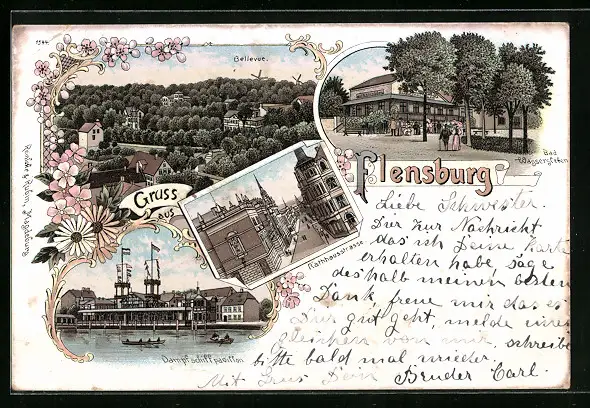 1544
Bellevue.
Bad
Wassersleben
Gruss
aus
Flensburg
Rathhausstrasse
Dampfschiffpavillon
Liebe Schwester.
Dir zur Nachricht
das ich Deine Karte
erhalten habe, sage
deshalb meinen besten
Dank, freue mir das es
Dir gut geht, melde
gleichen von mir, schreibe
bitte bald mal wieder.
Mit Gruss Dein Bruder Carl.